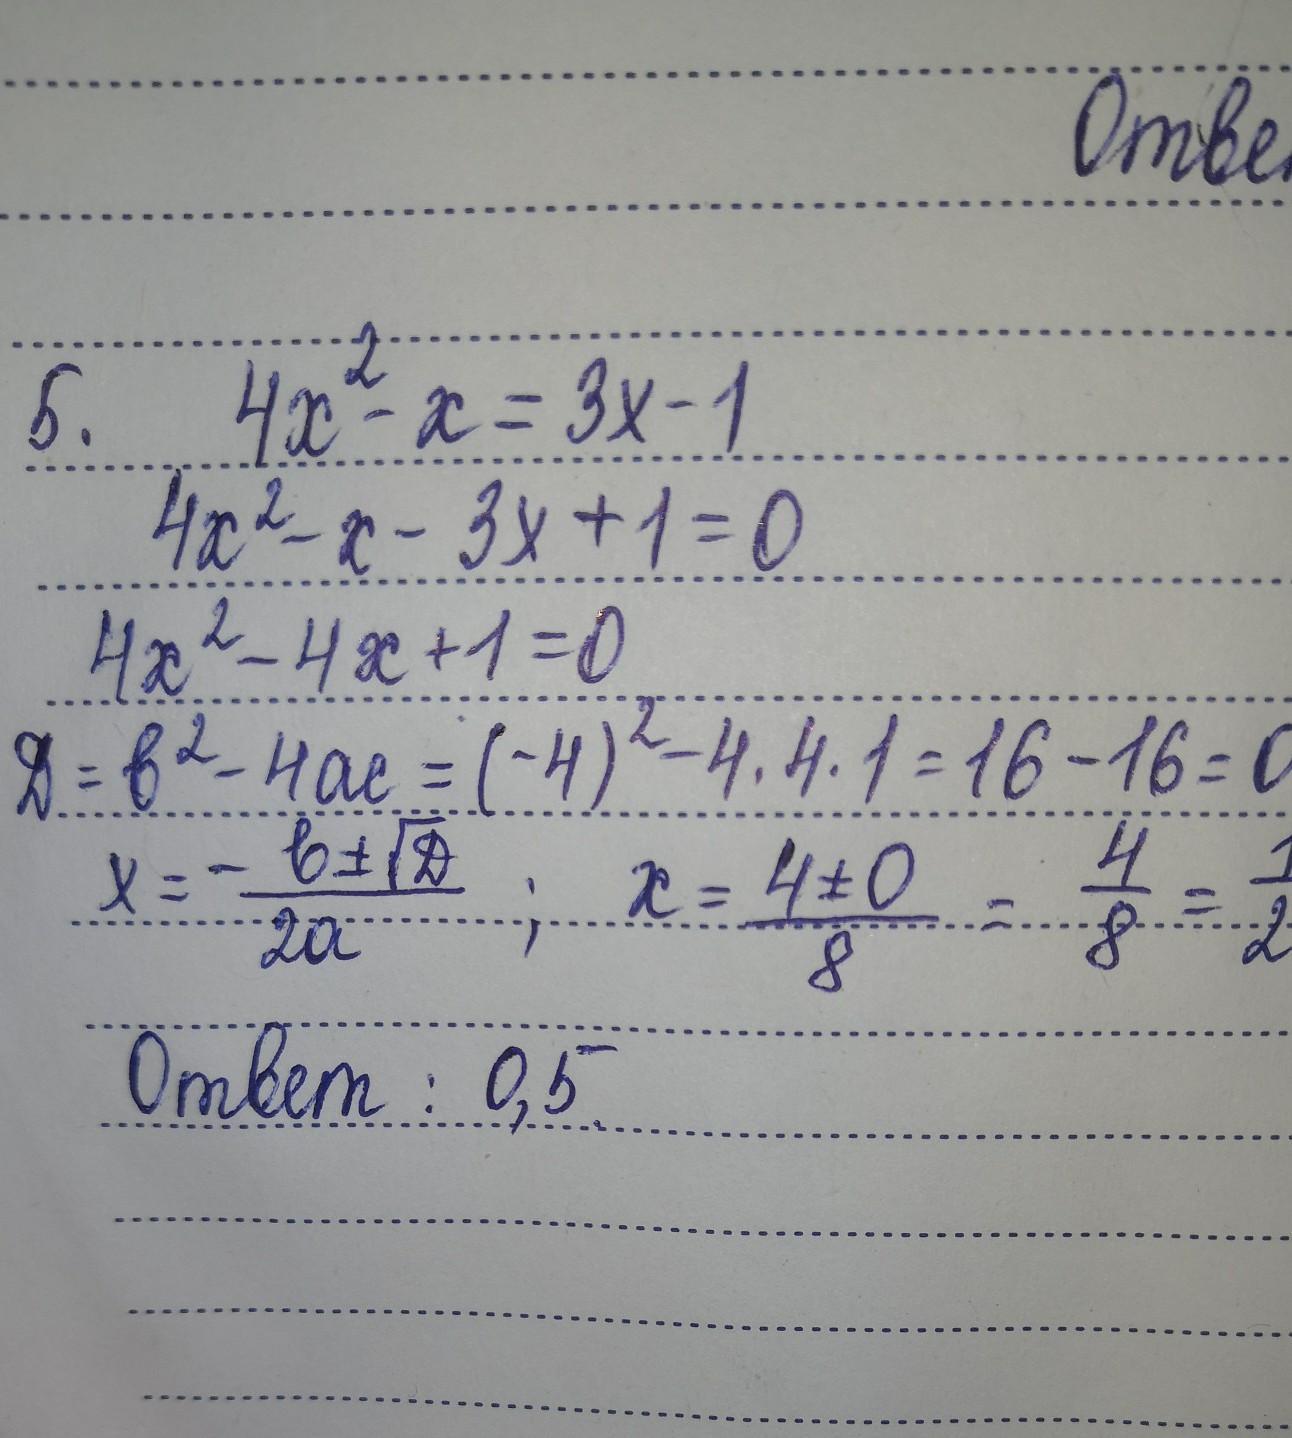 Ответ
5. 4x² - x = 3x - 1
4x² - x - 3x + 1 = 0
4x² - 4x + 1 = 0
D = b² - 4ac = (-4)² - 4 · 4 · 1 = 16 - 16 = 0
x = - b ± √D / 2a ; x = 4 ± 0 / 8 = 4/8 = 1/2
Ответ : 0,5.